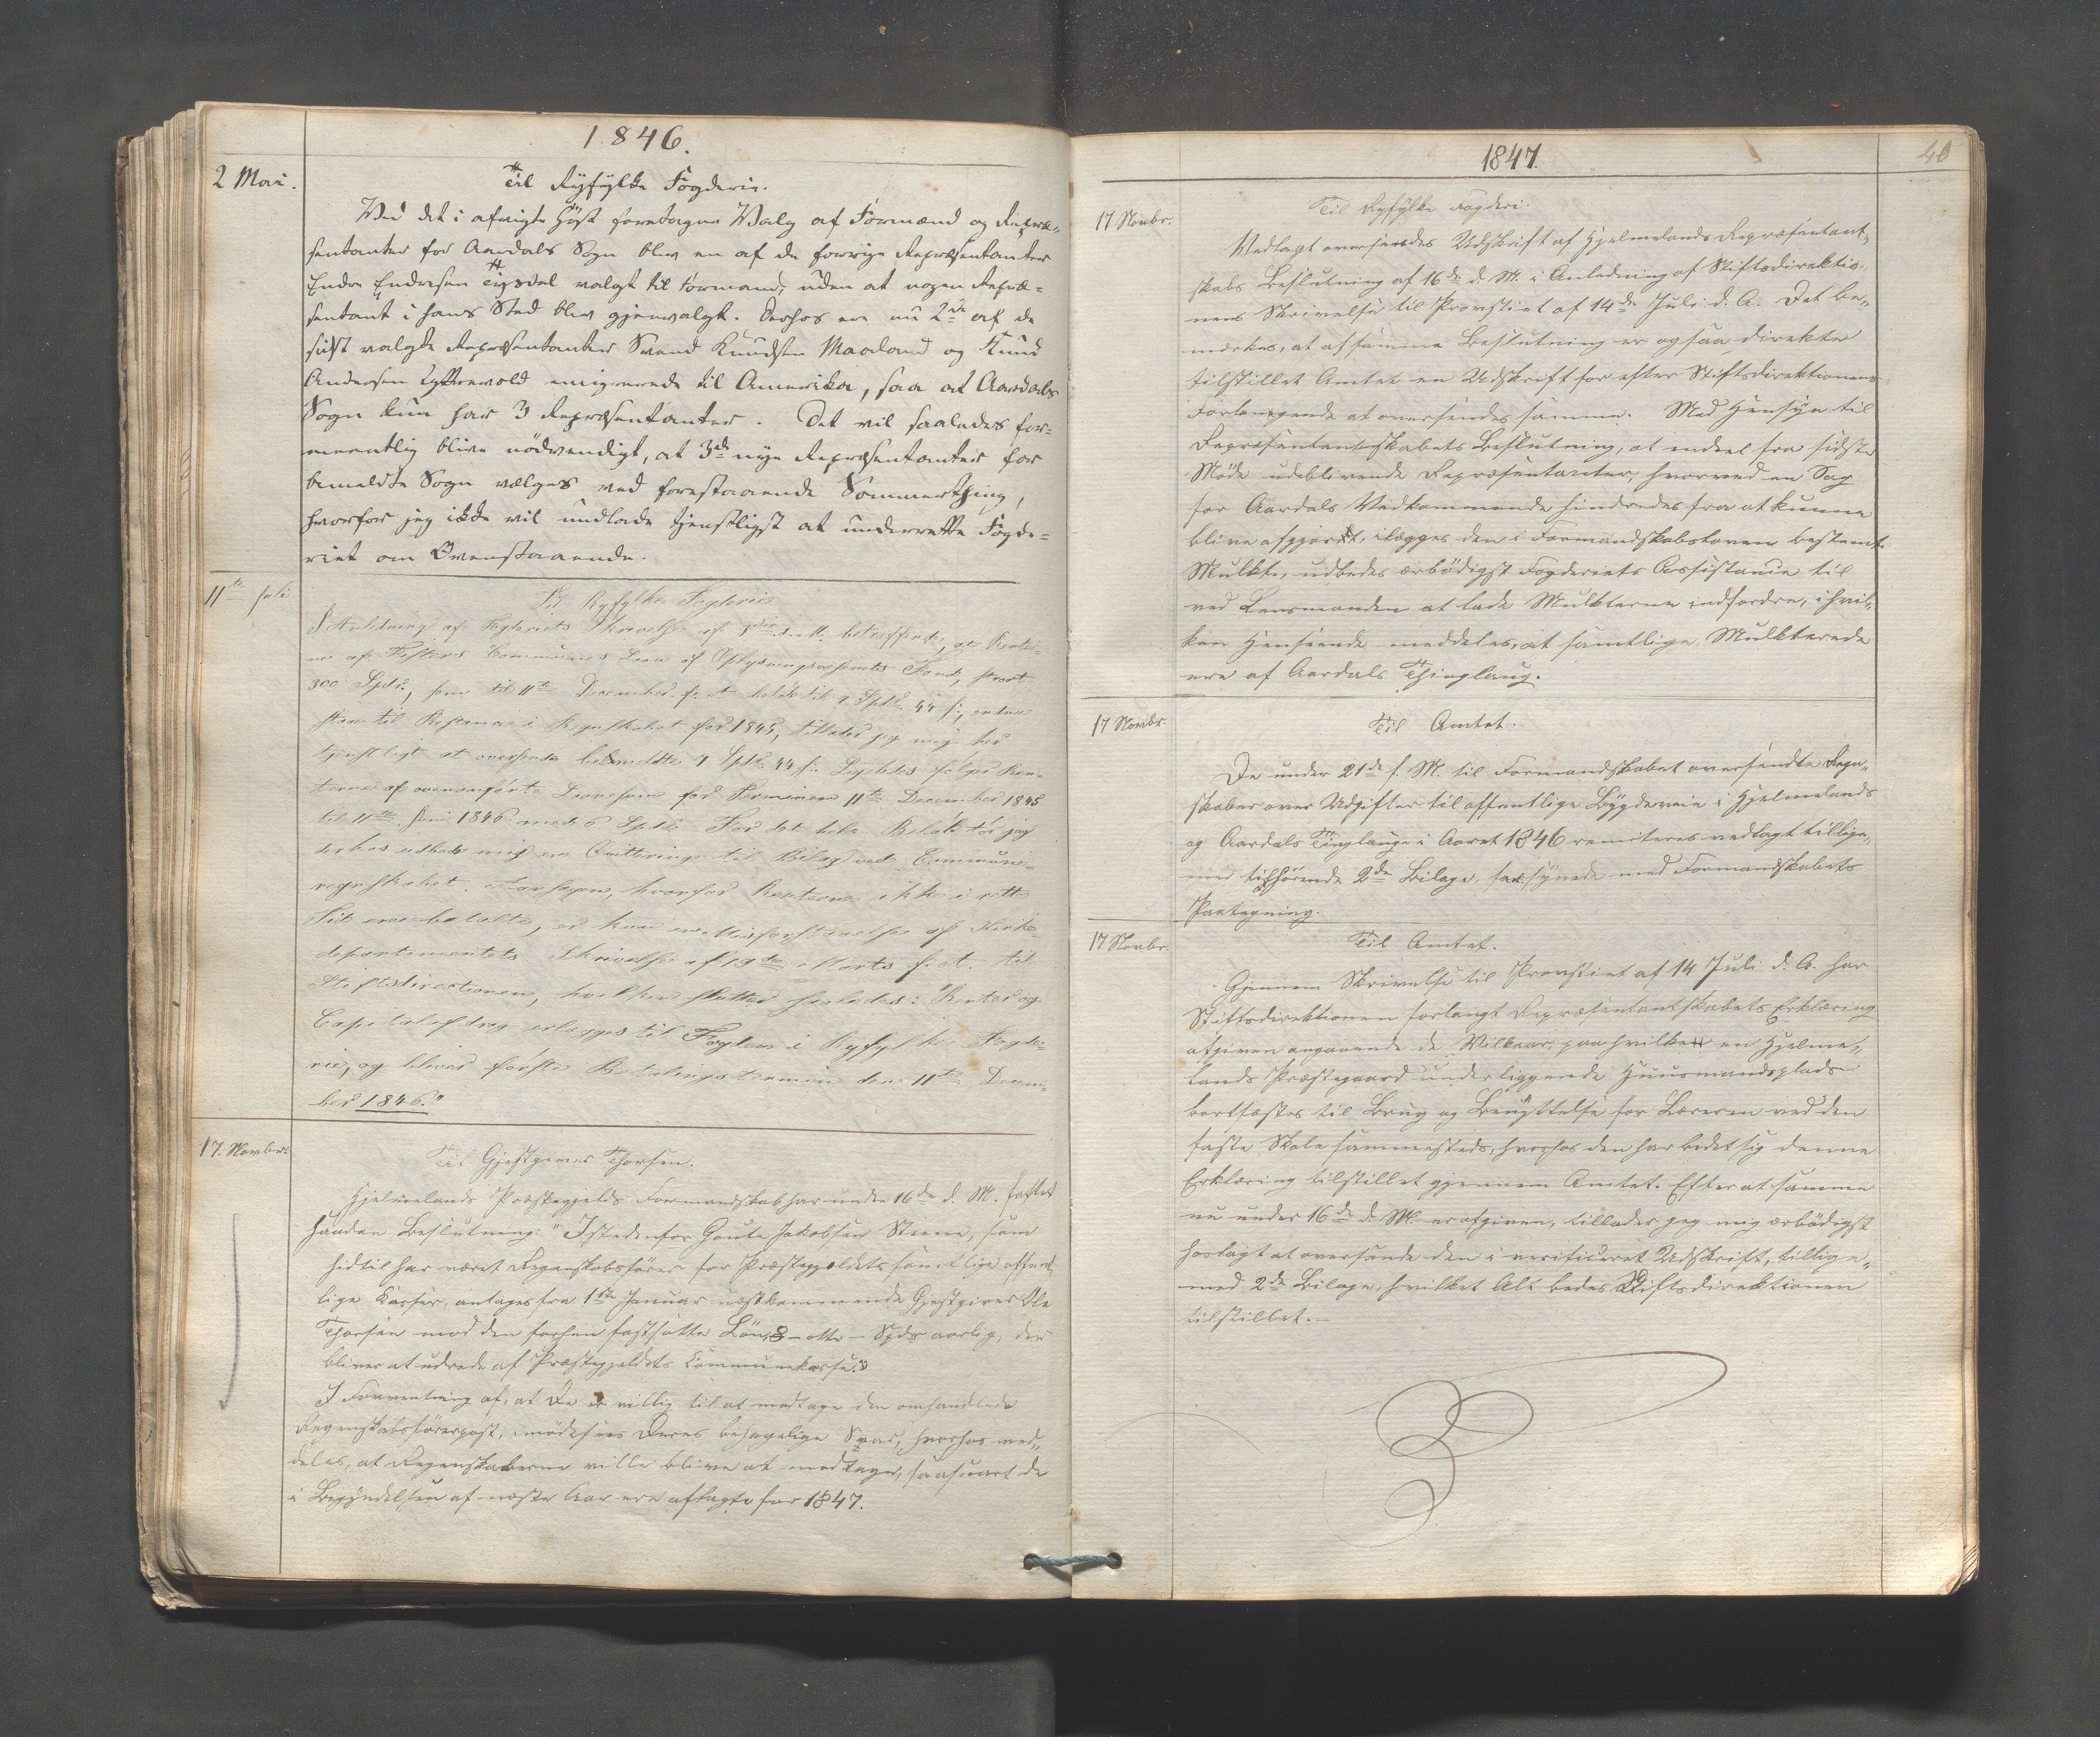 1846.
2 Mai.
Til Ryfylke Fogderie.
Ved det i afvigte Høst foretagne Valg af Formænd og Repræ-
sentanter for Aardals Sogn blev en af de forrige Repræsentanter
Endre Endresen Tysdal valgt til Formand, uden at nogen Repræ-
sentant i hans Sted blev gjenvalgt. Derhos ere nu 2de af de
sidst valgte Repræsentanter Svend Knudsen Maaland og Knud
Andersen emigrerede til Amerika, saa at Aardals
Sogn kun har 3 Repræsentanter. Det vil saaledes for-
meentlig blive nødvendigt, at 3de nye Repræsentanter for
bemeldte Sogn vælges ved forestaaende Sommerthing,
hvorfor jeg ikke vil undlade tjenstligst at underrette Fogde-
riet om Ovenstaaende.
11te Juli
Til Ryfylke Fogderie
I Anledning af Fogderiets Skrivelse af d. M. betræffende, at Rente-
ne af Fisters Communes Laan af Oplysningsvæsenets Fond, stort
300 Spd., som til 11te December f. A. beløb til 9 Spd. 44 s., endnu
staae til Restance i Regnskabet for 1845, tillader jeg mig her
tjenstligst at oversende bemeldte 9 Spd. 44 s. Ligeledes følger Ren-
terne af ovenanførte Laanesum for Terminen 11te December 1845
til 11te Juni 1846 med 6 Spd. For det hele Beløb tør jeg
derhos udbede mig en Qvittering til Bilag ved Commune-
regnskabet. Aarsagen, hvorfor Renterne ikke i rette
Tid ere betalte, er kun en Misforstaaelse af Kirke-
departementets Skrivelse af 19de Marts f. A. til
Stiftsdirectionen, hvilken slutter saaledes: "Renter og
Capitalafdrag erlægges til Fogden i Ryfylke Fogde-
rie, og bliver første Betalingstermin den 11te Decem-
ber 1846."
17. Novbr.
Til Gjestgiver Thorsen.
Hjelmelands Præstegjelds Formandskab har under 16de d. M. fattet
saadan Beslutning: "Istedenfor Gaute Jakobsen Steene, som
hidtil har været Regnskabsfører for Præstegjeldets samtlige offent-
lige Kasser, antages fra 1ste Januar næstkommende Gjestgiver Ole
Thorsen mod den forhen fastsatte Løn, 8 – otte – Spdr aarlig, der
bliver at udrede af Præstegjeldets Communekasse."
I Forventning af, at De er villig til at modtage den omhandlede
Regnskabsførerpost, imødesees Deres behagelige Svar, hvorhos med-
deles, at Regnskaberne ville blive at modtage, saasnart de
i Begyndelsen af næste Aar ere aflagte for 1847.
1847.
40
17 Novbr.
Til Ryfylke Fogderi.
Vedlagt oversendes Udskrift af Hjelmelands Repræsentant-
skabs Beslutning af 16de d. M. i Anledning af Stiftsdirektio-
nens Skrivelse til Provstiet af 14de Juli d. A. Det be-
mærkes, at af samme Beslutning er ogsaa direkte
tilstillet Amtet en Udskrift for efter Stiftsdirektionens
Forlangende at oversendes samme. Med Hensyn til
Repræsentantskabets Beslutning, at endeel fra sidste
Møde udeblivende Repræsentanter, hvorved en Sag
for Aardals Vedkommende hindredes fra at kunne
blive afgjort, ilægges den i Formandskabsloven bestemte
Mulkt, udbedes ærbødigst Fogderiets Assistance til
ved Lensmanden at lade Mulkterne indfordre, i hvil-
ken Henseende meddeles, at samtlige Mulkterede
ere af Aardals Thinglaug.
17 Novbr.
Til Amtet.
De under 21de f. M. til Formandskabet oversendte Regn-
skaber over Udgifter til offentlige Bygdeveie i Hjelmelands
og Aardals Tinglauge i Aaret 1846 remiteres vedlagt tillige-
med tilhørende 2de Bilage, forsynede med Formandskabets
Paategning.
17 Novbr.
Til Amtet.
Gjennem Skrivelse til Provstiet af 14 Juli d. A. har
Stiftsdirektionen forlangt Repræsentantskabets Erklæring
afgiven angaaende de Vilkaar, paa hvilke en Hjelme-
lands Præstegaard underliggende Huusmandsplads
bortfæstes til Brug og Benyttelse for Læreren ved den
faste Skole sammesteds, hvorhos den har bedet sig denne
Erklæring tilstillet gjennem Amtet. Efter at samme
nu under 16de d. M. er afgiven, tillader jeg mig ærbødigst
hoslagt at oversende den i verificeret Udskrift, tillige-
med 2de Bilage, hvilket Alt bedes Stiftsdirektionen
tilstillet.–